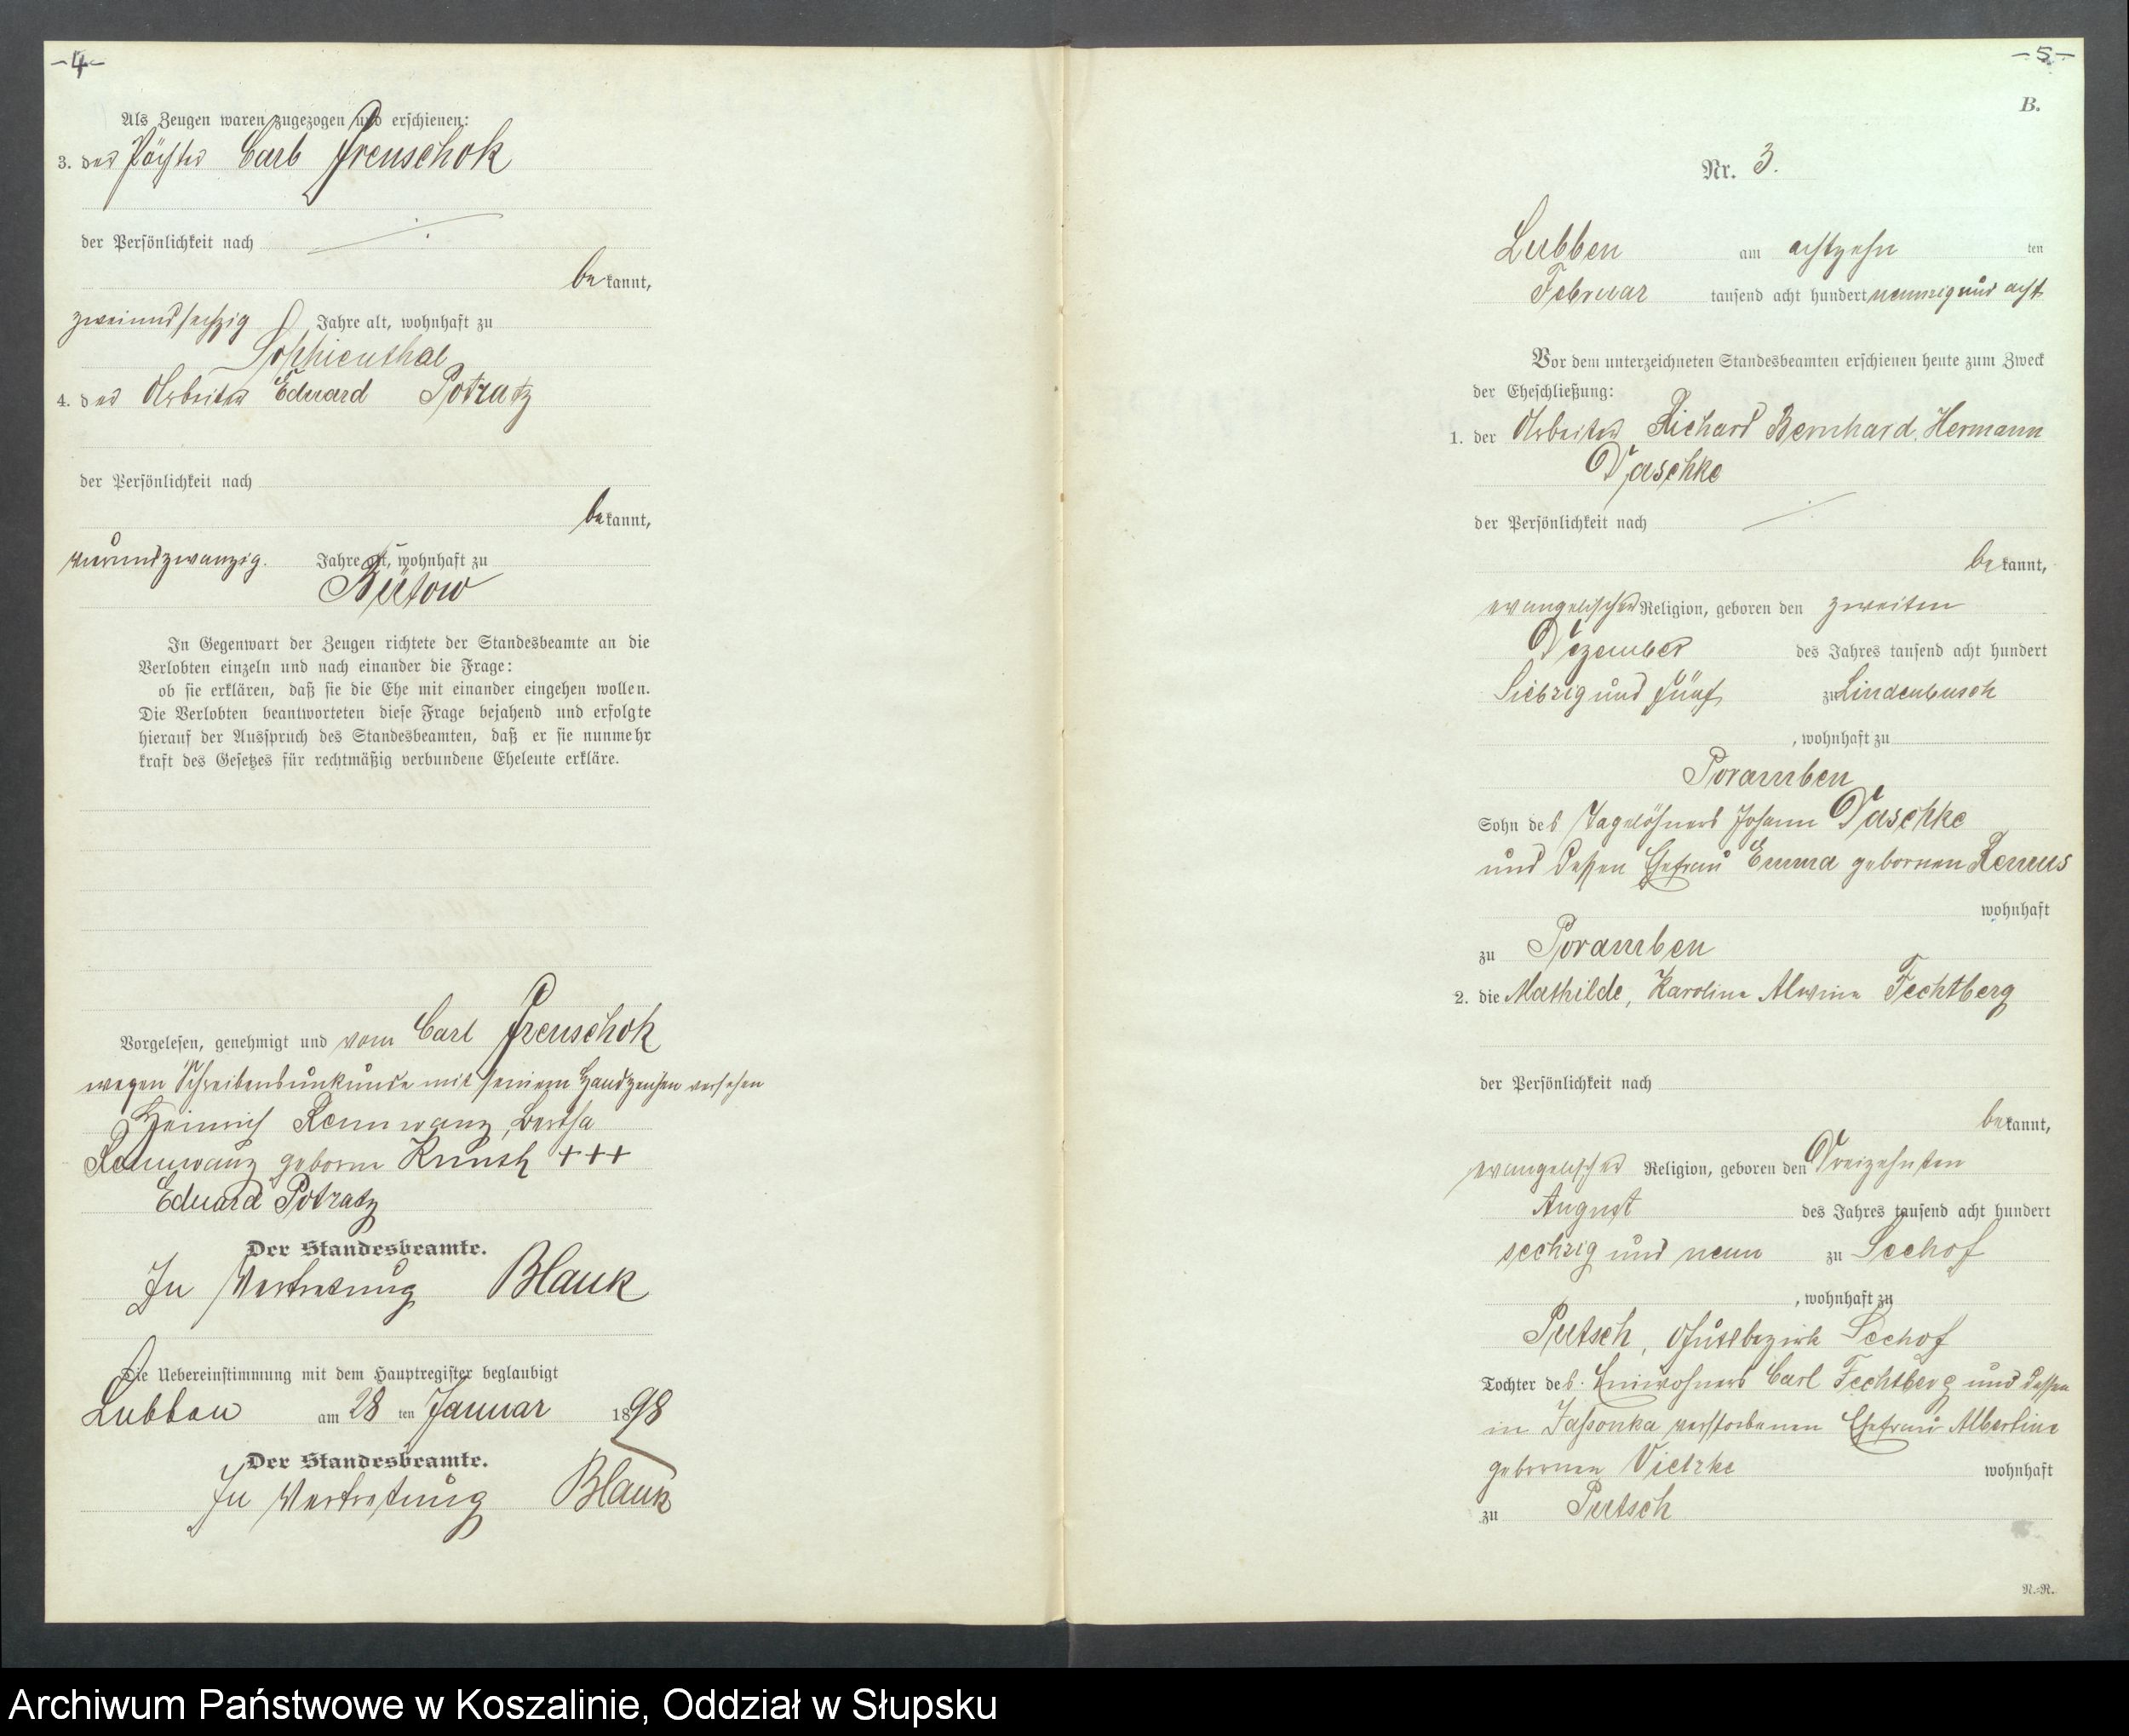 -4-
Als Zeugen waren zugezogen und erschienen:
3. der Pächter Carl Preuschok
der Persönlichkeit nach
bekannt,
zweiundsechzig Jahre alt, wohnhaft zu
Sophienthal
4. der Arbeiter Eduard Potratz
der Persönlichkeit nach
bekannt,
vierundzwanzig. Jahre alt, wohnhaft zu
Bütow
In Gegenwart der Zeugen richtete der Standesbeamte an die
Verlobten einzeln und nach einander die Frage:
ob sie erklären, daß sie die Ehe mit einander eingehen wollen.
Die Verlobten beantworteten diese Frage bejahend und erfolgte
hierauf der Ausspruch des Standesbeamten, daß er sie nunmehr
kraft des Gesetzes für rechtmäßig verbundene Eheleute erkläre.
Vorgelesen, genehmigt und vom Carl Preuschok
wegen Schreibensunkunde mit seinem Handzeichen versehen
Heinrich Rennwanz, Bertha
Rennwanz geborne +++
Eduard Potratz
Der Standesbeamte.
In Vertretung Blank
Die Uebereinstimmung mit dem Hauptregister beglaubigt
Lubben am 28 ten Januar 1898
Der Standesbeamte.
In Vertretung Blank
-5-
B.
Nr. 3.
Lubben am achtzehn ten
Februar tausend acht hundert neunzig und acht
Vor dem unterzeichneten Standesbeamten erschienen heute zum Zweck
der Eheschließung:
1. der Arbeiter Richard Bernhard Hermann
Daschke
der Persönlichkeit nach
bekannt,
evangelischer Religion, geboren den zweiten
Dezember des Jahres tausend acht hundert
siebzig und fünf zu Lindenbusch
, wohnhaft zu
Poramben
Sohn des Tagelöhners Johann Daschke
und dessen Ehefrau Emma gebornen Remus
wohnhaft
zu Poramben
2. die Mathilde, Karoline Alwine Fechtberg
der Persönlichkeit nach
bekannt,
evangelischer Religion, geboren den Dreizehnten
August des Jahres tausend acht hundert
sechzig und neun zu Seehof
, wohnhaft zu
Putsch, Gutsbezirk Seehof
Tochter des Einwohners Carl Fechtberg und dessen
in Jassonka verstorbenen Ehefrau Albertine
gebornen Vietzke wohnhaft
zu Putsch
N.=R.
Archiwum Państwowe w Koszalinie, Oddział w Słupsku